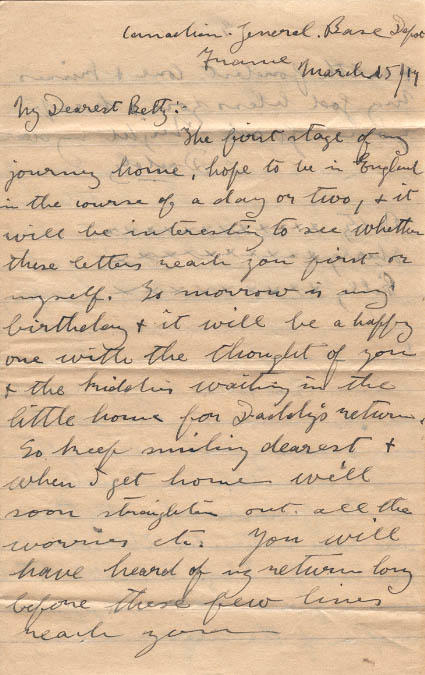 Canadian. General. Base Depot
France
March 15/17
My Dearest Betty:
The first stage of my
journey home, hope to be in England
in the course of a day or two, & it
will be interesting to see whether
these letters reach you first or
myself. To morrow is my
birthday & it will be a happy
one with the thought of you
& the kiddies waiting in the
little home for Daddy's return.
So keep smiling dearest &
when I get home we'll
soon straighten out all the
worries etc. You will
have heard of my return long
before these few lines
reach you